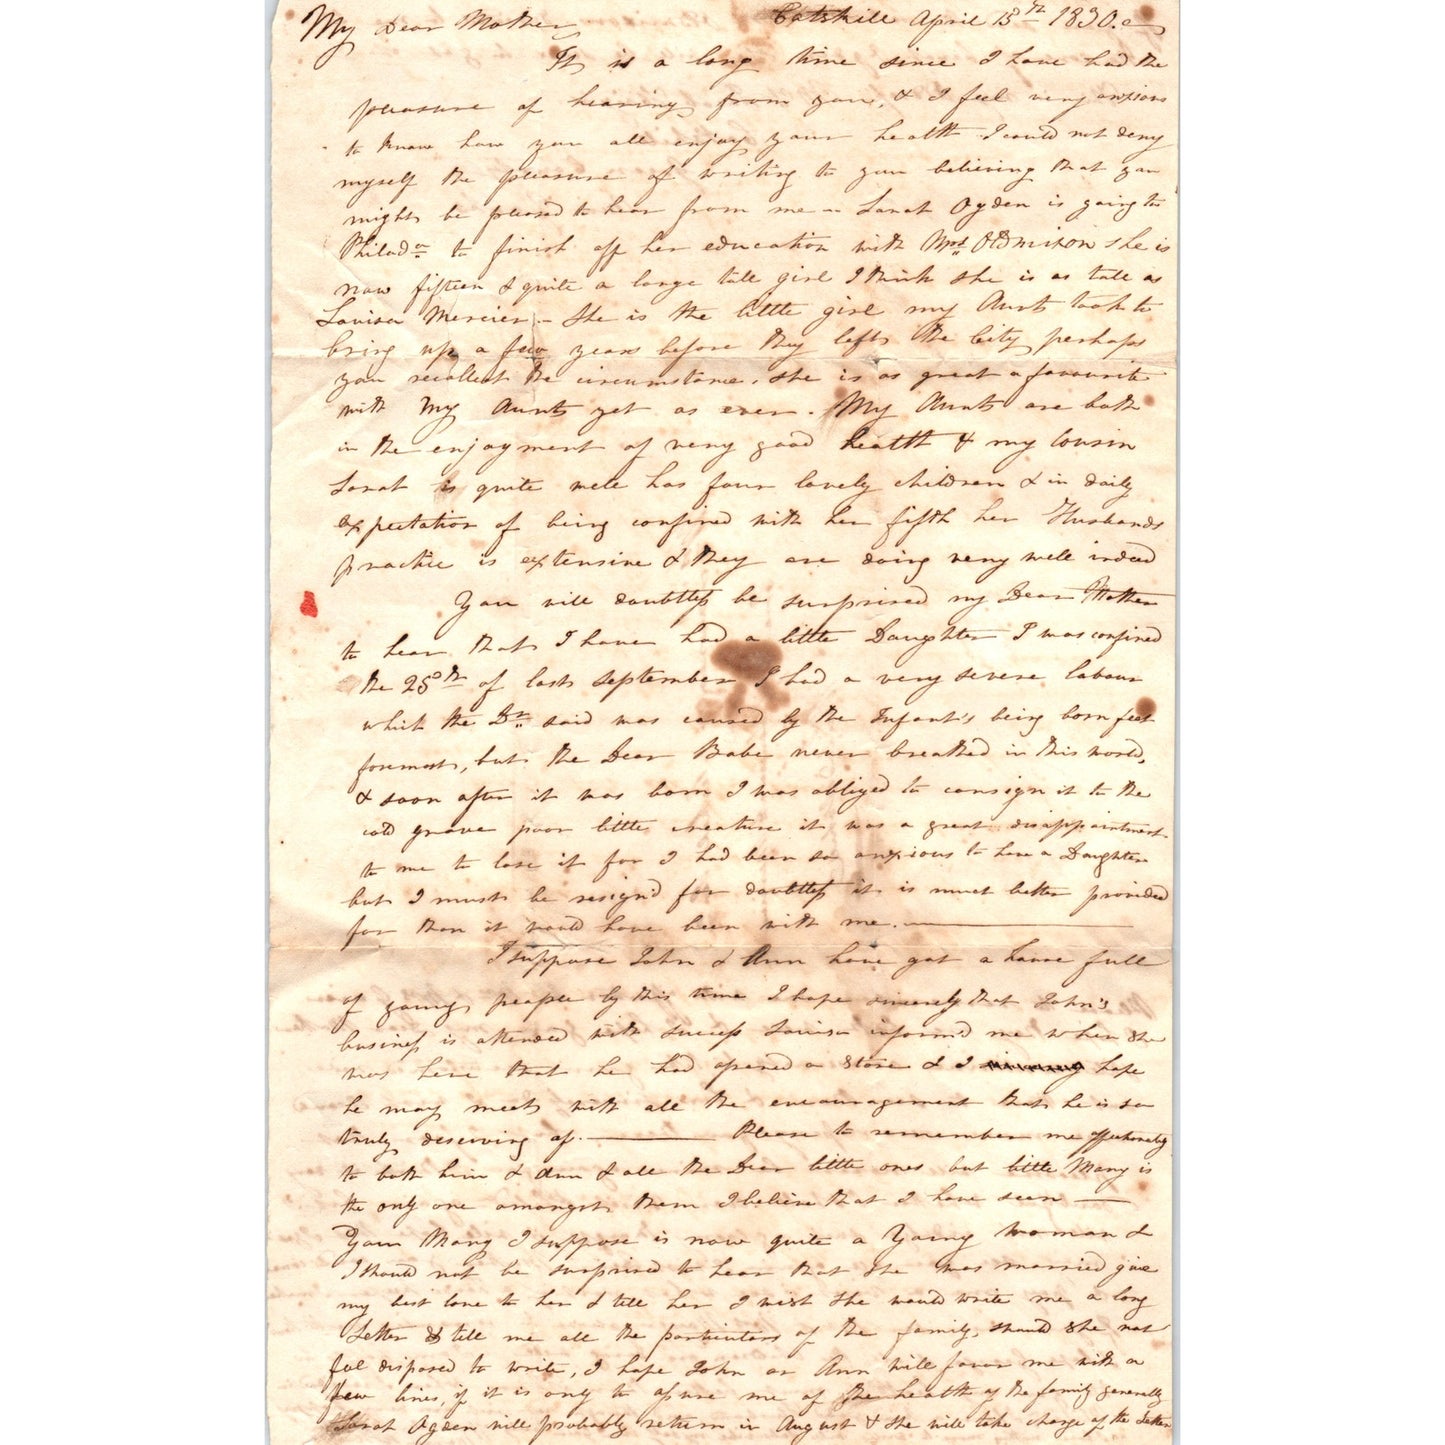 My Dear Mother Catskill April 15th 1830.
It is a long time since I have had the
pleasure of hearing from you, & I feel very anxious
to know how you all enjoy your health I could not deny
myself the pleasure of writing to you believing that you
might be pleased to hear from me — Sarah Ogden is going to
Philada to finish off her education with Mrs Oldmixon she is
now fifteen & quite a large tall girl I think she is as tall as
Louisa Mercier — She is the little girl my Aunts took to
bring up a few years before they left the City perhaps
you recollect the circumstance. she is as great a favourite
with My Aunts yet as ever. My Aunts are both
in the enjoyment of very good health & my Cousin
Sarah is quite well has four lovely children & in daily
expectation of being confined with her fifth her Husbands
practice is extensive & they are doing very well indeed
You will doubtless be surprised my Dear Mother
to hear that I have had a little Daughter I was confined
the 25th of last September I had a very severe labour
which the Dr said was caused by the Infant's being born feet
foremost, but the Dear Babe never breathed in this world,
& soon after it was born I was obliged to consign it to the
cold grave poor little creature it was a great disappointment
to me to lose it for I had been so anxious to have a Daughter
but I must be resign'd for doubtless it is much better provided
for than it would have been with me. —
I suppose John & Ann have got a house full
of young people by this time I hope sincerely that John's
business is attended with success Louisa inform'd me when she
was here that he had opened a Store & I hope
he may meet with all the encouragement that he is so
truly deserving of. — Please to remember me affectionately
to both him & Ann & all the Dear little ones but little Mary is
the only one amongst them I believe that I have seen —
Your Mary I suppose is now quite a Young Woman &
I should not be surprised to hear that she was married give
my best love to her & tell her I wish she would write me a long
Letter & tell me all the particulars of the family, should she not
feel disposed to write, I hope John or Ann will favor me with a
few lines, if it is only to assure me of the health of the family generally
Sarah Ogden will probably return in August & she will take charge of the Letter